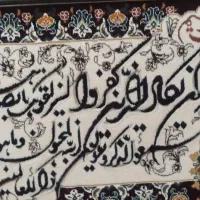 ن يكاد الذين كفروا ليزلقونك بابصا
الذكر ويقولون انه لمجنون وما هو
ذكر للعالمين